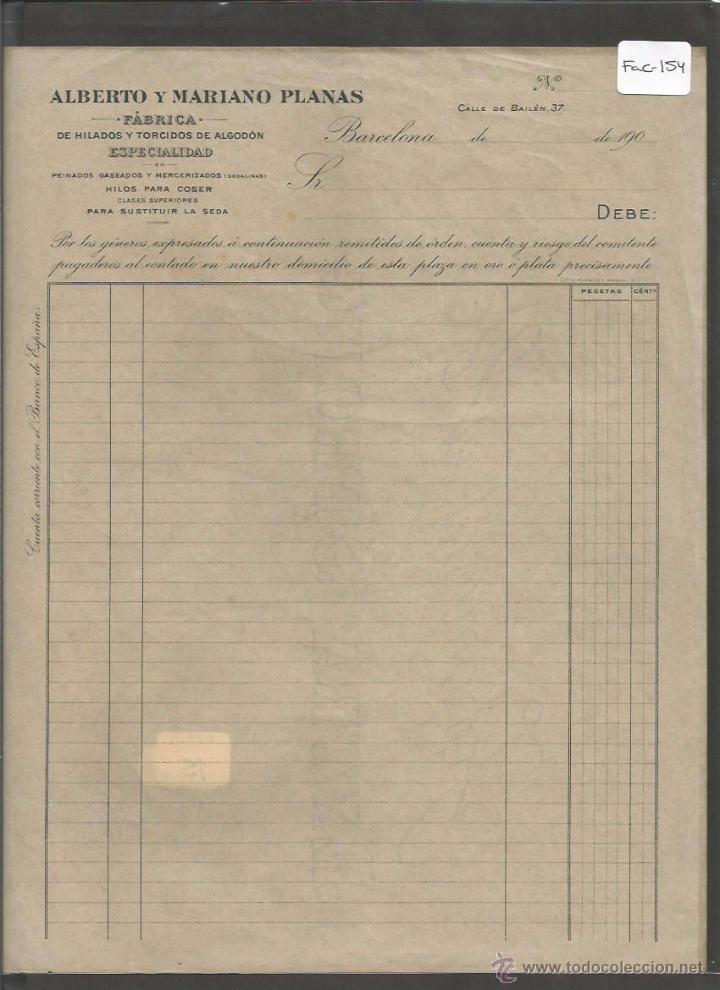 Fac-154
ALBERTO Y MARIANO PLANAS
FÁBRICA
DE HILADOS Y TORCIDOS DE ALGODÓN
ESPECIALIDAD
EN
PEINADOS GASEADOS Y MERCERIZADOS (SEDALINAS)
HILOS PARA COSER
CLASES SUPERIORES
PARA SUSTITUIR LA SEDA
Nº
CALLE DE BAILÉN, 37.
Barcelona de de 190
Sr
DEBE:
Por los géneros expresados á continuación remitidos de órden, cuenta y riesgo del comitente
pagaderos al contado en nuestro domicilio de esta plaza en oro ó plata precisamente
PESETAS CÉNTS
Cuenta corriente con el Banco de España.
www.todocoleccion.net